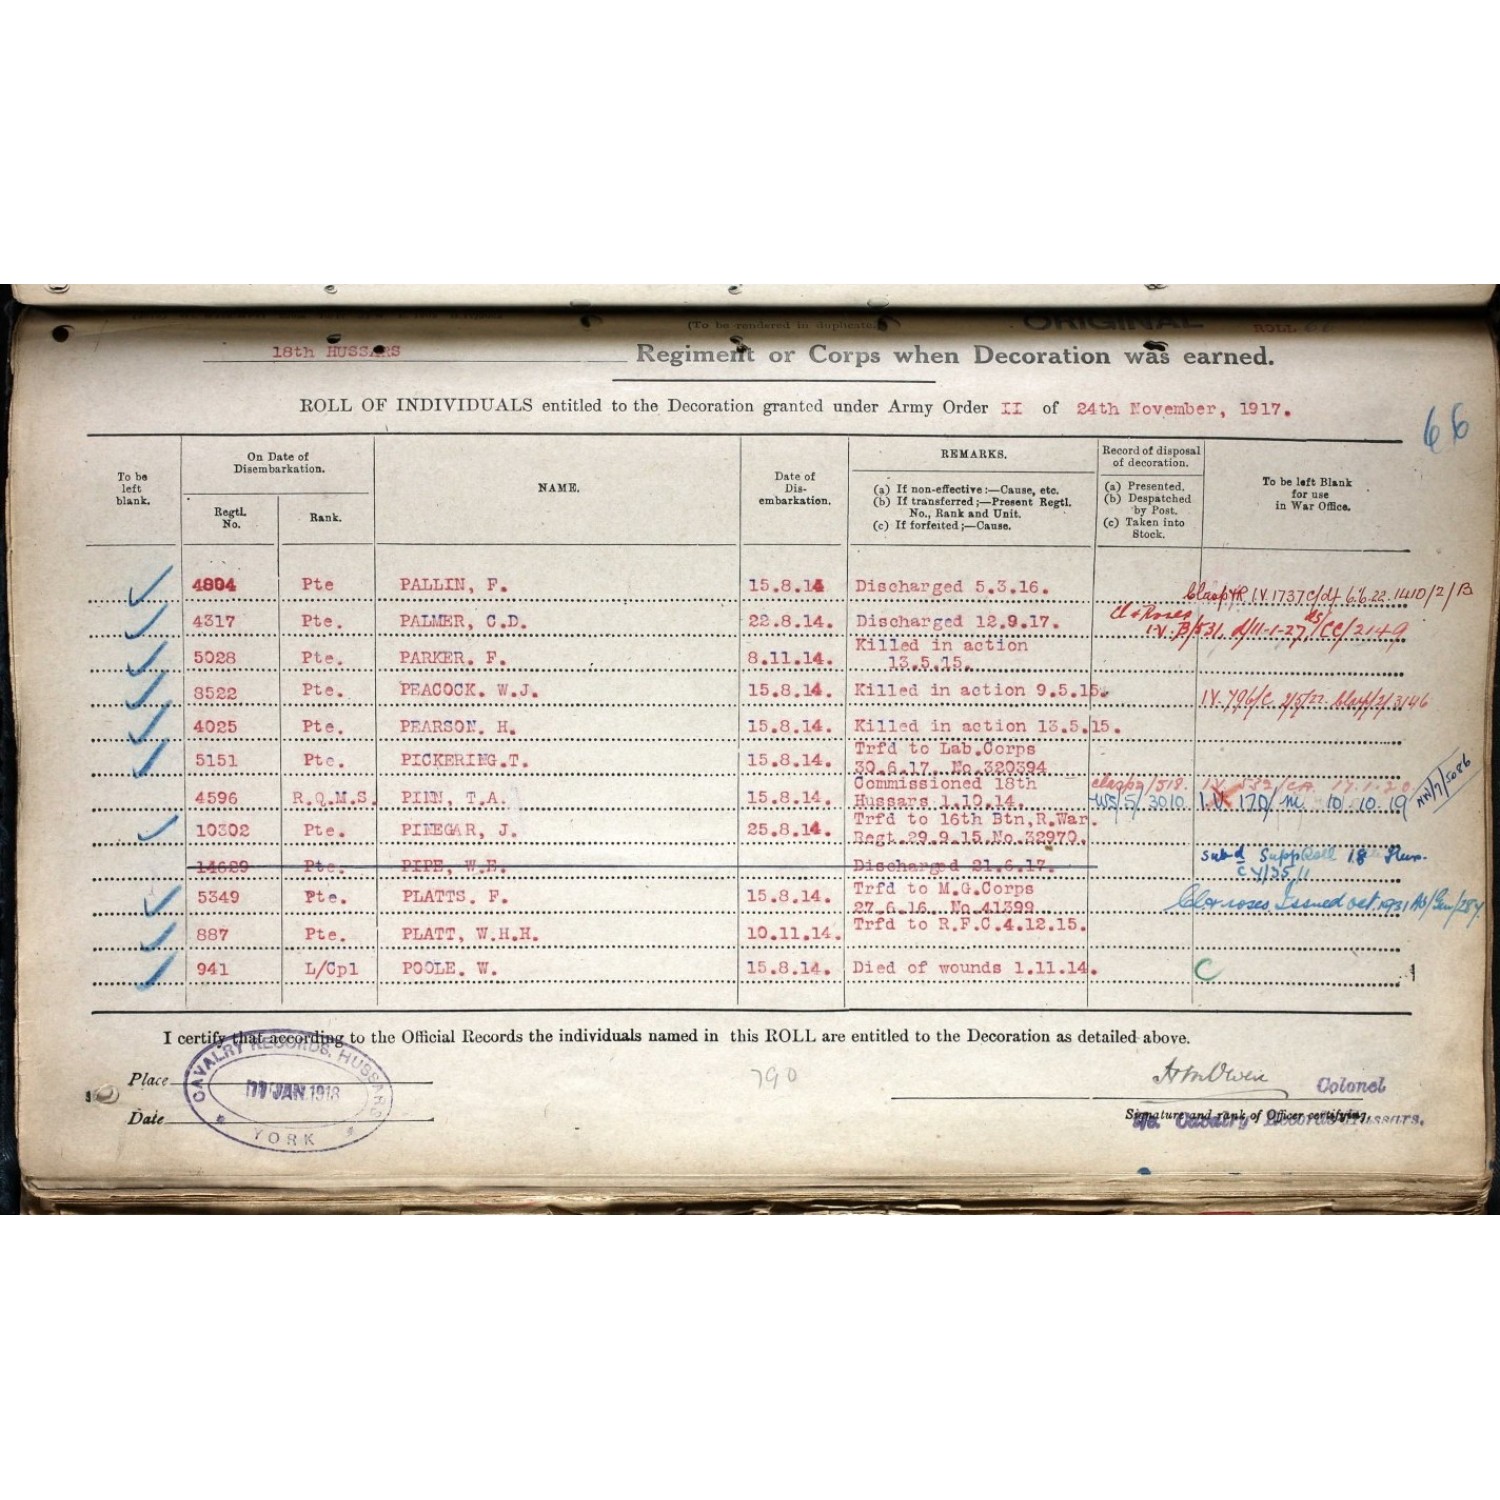 (To be rendered in duplicate.)
ORIGINAL
ROLL 66
18th HUSSARS Regiment or Corps when Decoration was earned.
ROLL OF INDIVIDUALS entitled to the Decoration granted under Army Order II of 24th November, 1917.
66
To be left blank.
On Date of Disembarkation.
Regtl. No.
Rank.
NAME.
Date of Dis-embarkation.
REMARKS.
(a) If non-effective:—Cause, etc.
(b) If transferred;—Present Regtl. No., Rank and Unit.
(c) If forfeited;—Cause.
Record of disposal of decoration.
(a) Presented.
(b) Despatched by Post.
(c) Taken into Stock.
To be left Blank for use in War Office.
4804 Pte PALLIN, F. 15.8.14 Discharged 5.3.16. Clasp I.V. 1737 6.6.22. 1410/2/B
4317 Pte. PALMER, C.D. 22.8.14. Discharged 12.9.17. Cl & Roses
I.V. B/531 d/11-1-27 /CC/2149
5028 Pte. PARKER. F. 8.11.14. Killed in action
13.5.15.
8522 Pte. PEACOCK. W.J. 15.8.14. Killed in action 9.5.15. I.V. 796/C 2/5/22 Clasp/2/3146
4025 Pte. PEARSON. H. 15.8.14. Killed in action 13.5.15.
5151 Pte. PICKERING.T. 15.8.14. Trfd to Lab.Corps
30.6.17. No.320394
4596 R.Q.M.S. PINN, T.A. 15.8.14. Commissioned 18th
Hussars 1.10.14. WS/5/3010 I.V. 170/M 10.10.19 NW/7/5086
10302 Pte. PINEGAR, J. 25.8.14. Trfd to 16th Btn,R.War.
Regt.29.9.15.No.32970.
14629 Pte. PIPE, W.E. Discharged 21.6.17. Supp Roll 18 Hus.
CY/35/1
5349 Pte. PLATTS. F. 15.8.14. Trfd to M.G.Corps
27.6.16. No.41399 Cl & roses Issued Oct 1931
887 Pte. PLATT, W.H.H. 10.11.14. Trfd to R.F.C.4.12.15.
941 L/Cpl POOLE. W. 15.8.14. Died of wounds 1.11.14. C
I certify that according to the Official Records the individuals named in this ROLL are entitled to the Decoration as detailed above.
Place
Date
CAVALRY RECORDS, HUSSARS
JAN 1918
YORK
790
Colonel
Signature and rank of Officer certifying.
Cavalry Records Hussars.